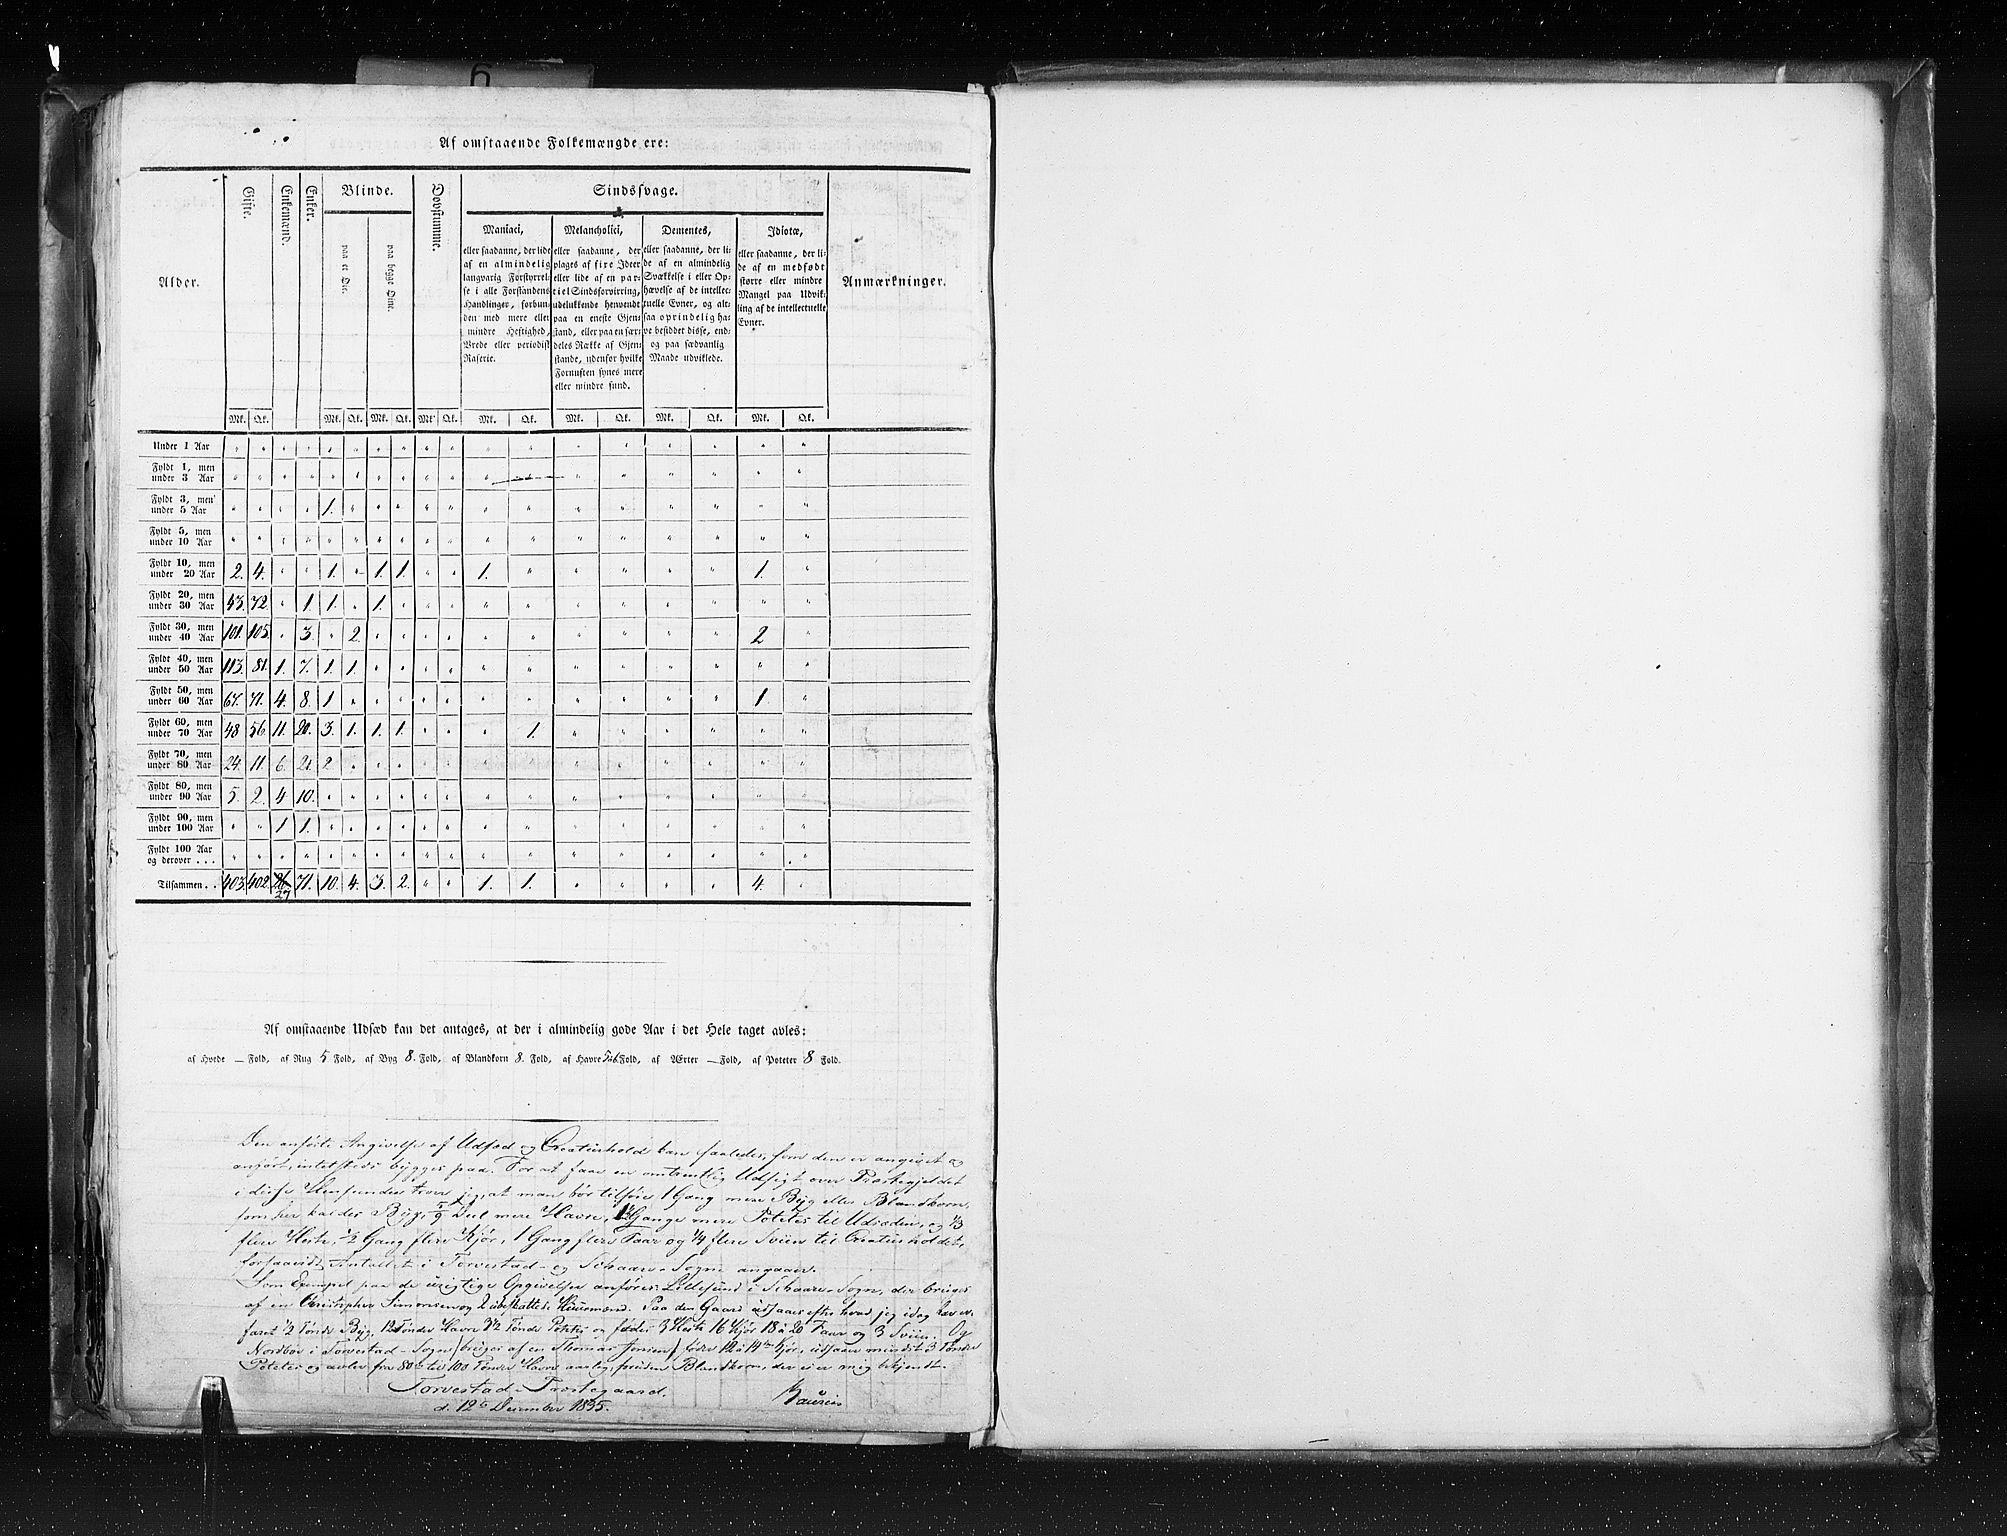 6
Af omstaaende Folkemængde ere:
Alder. Gifte. Enkemænd. Enker. Blinde. Døvstumme. Sindssvage. Anmærkninger.
paa et Øie. paa begge Øine.
Maniaci,
eller saadanne, der lide
af en almindelig
langvarig Forstyrrel-
se i alle Forstandens
Handlinger, forbun-
den med mere eller
mindre Heftighed,
Vrede eller periodisk
Raserie.
Melancholici,
eller saadanne, der
plages af fire Ideer
eller lide af en par-
tiel Sindsforvirring,
udelukkende henvendt
paa en eneste Gjen-
stand, eller paa en sær-
deles Række af Gjen-
stande, udenfor hvilke
Fornuften synes mere
eller mindre sund.
Dementes,
eller saadanne, der li-
de af en almindelig
Svækkelse i eller Op-
hævelse af de intellec-
tuelle Evner, og alt-
saa oprindelig ha-
ve besiddet disse, end-
og paa sædvanlig
Maade udviklede.
Idiotæ,
eller saadanne, der li-
de af en medfødt
større eller mindre
Mangel paa Udvik-
ling af de intellectuelle
Evner.
Mk. Qk. Mk. Qk. Mk. Qk. Mk. Qk. Mk. Qk. Mk. Qk. Mk. Qk. Mk. Qk.
Under 1 Aar " " " " " " " " " " " " " " " " " "
Fyldt 1, men
under 3 Aar " " " " " " " " " " " " " " " " " "
Fyldt 3, men
under 5 Aar " " " " 1. " " " " " " " " " " " " "
Fyldt 5, men
under 10 Aar " " " " " " " " " " " " " " " " " "
Fyldt 10, men
under 20 Aar 2. 4. " " 1. " 1. 1. " " 1. " " " " " 1. "
Fyldt 20, men
under 30 Aar 43. 72. " 1 1. " 1. " " " " " " " " " " "
Fyldt 30, men
under 40 Aar 101. 105. " 3. " 2. " " " " " " " " " " 2 "
Fyldt 40, men
under 50 Aar 113. 81. 1. 7. 1. 1. " " " " " " " " " " " "
Fyldt 50, men
under 60 Aar 67. 71. 4. 8. 1 " " " " " " " " " " " 1 "
Fyldt 60, men
under 70 Aar 48 56. 11. 20. 3. 1. 1. 1. " " " 1. " " " " " "
Fyldt 70, men
under 80 Aar 24. 11. 6. 21. 2 " " " " " " " " " " " " "
Fyldt 80, men
under 90 Aar 5. 2. 4 10. " " " " " " " " " " " " " "
Fyldt 90, men
under 100 Aar " " 1 1. " " " " " " " " " " " " " "
Fyldt 100 Aar
og derover . . . " " " " " " " " " " " " " " " " " "
Tilsammen . . 403. 402. 26 71. 10. 4. 3. 2. " " 1. 1. " " " " 4. "
27
Af omstaaende Udsæd kan det antages, at der i almindelig gode Aar i det Hele taget avles:
af Hvede — Fold, af Rug 5 Fold, af Byg 8. Fold, af Blandkorn 8. Fold, af Havre 5à6 Fold, af Ærter — Fold, af Poteter 8 Fold.
Den anførte Angivelse af Udsæd og Creaturhold kan saaledes, som den er angivet og
anført, intetsteds bygges paa. For at faae en omtrentlig Udsigt over Præstegjeldet
i disse Henseender troer jeg, at man bør tilføie 1 Gang mere Byg eller Blandkorn,
som her kaldes Byg, 5/9 Deel mere Havre, Gange mere Poteter til Udsæden, og 1/3
flere Heste, 1/2 Gang flere Kjør, 1 Gang flere Faar og 1/4 flere Sviin til Creaturholdet,
forsaavidt Antallet i Torvestad- og Schaare-Sogne angaaer.
Som Exempel paa de urigtige Opgivelser anføres: Lillesund i Schaare-Sogn, der bruges
af en Christopher Simonsen og 2 ubeskattede Huusmænd. Paa den Gaard udsaaes efter hvad jeg idag har er-
faret 1/2 Tønde Byg, 12 Tønder Havre 3 1/2 Tønde Poteter og fødes 3 Heste 16 Kjør 18 à 20 Faar og 3 Sviin. Og
Nordbø i Torvestad-Sogn (bruges af en Thomas Jensen) føder 12 à 14ten Kjør, udsaaer mindst 3 Tønder
Poteter og avler fra 80 til 100 Tønder Havre aarlig, foruden Blandkorn, der ei er mig bekjendt.
Torvestad-Præstegaard.
d. 12te December 1835.